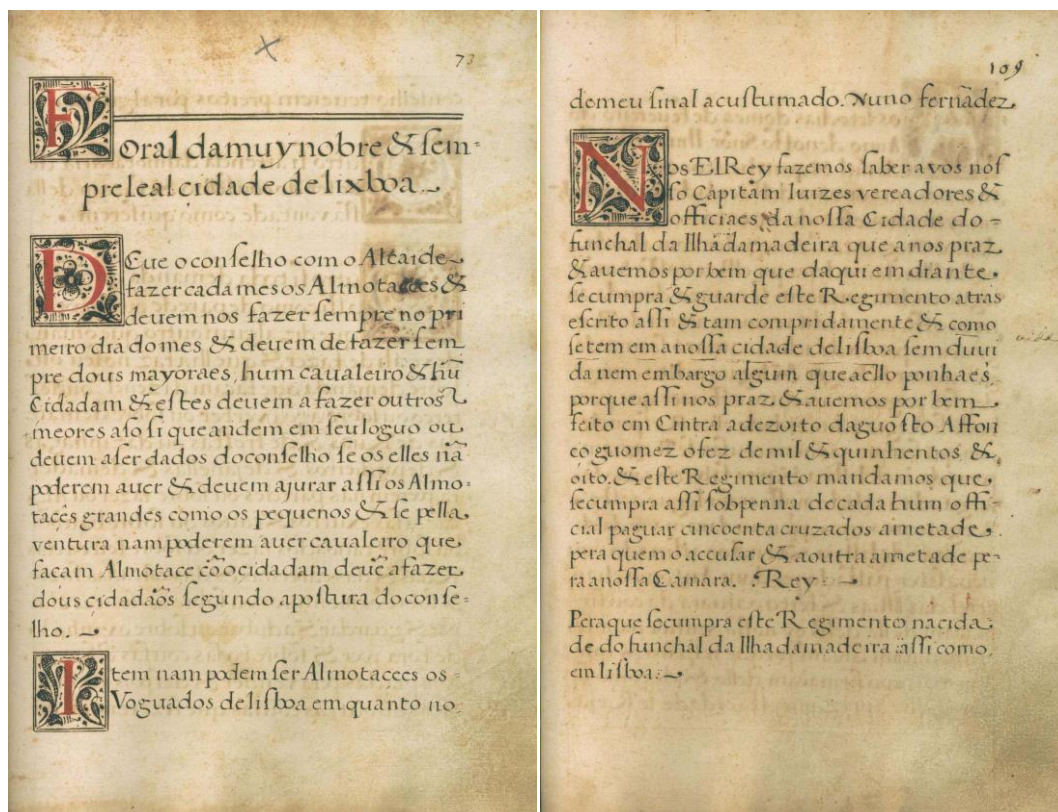 73
Foral da muy nobre & sem-
pre leal cidade de lixboa.
Deue o conselho com o Alcaide
fazer cada mes os Almotacees &
deuem nos fazer sempre no pri
meiro dia do mes & deuem de fazer sem
pre dous mayoraes, hum caualeiro & hũ
Cidadam & estes deuem a fazer outros
meores aso si que andem em seu loguo ou
deuem a ser dados do conselho se os elles nã
poderem auer & deuem a jurar assi os Almo-
tacẽs grandes como os pequenos & se pella
ventura nam poderem auer caualeiro que
facam Almotace cõ o cidadam deuẽ a fazer
dous cidadaõs segundo a postura do conse-
lho.
Item nam podem ser Almotacees os
Voguados de lisboa em quanto no
109
do meu sinal acustumado. Nuno fernãdez
Nos El Rey fazemos saber a vos nos
so Capitam Iuizes vereadores &
officiaes da nossa Cidade do
funchal da Ilha da madeira que a nos praz
& auemos por bem que daqui em diante
se cumpra & guarde este Regimento atras
escrito assi & tam compridamente & como
se tem em a nossa cidade de lisboa sem duui
da nem embargo algum que a ello ponhaes
porque assi nos praz & auemos por bem
feito em Cintra a dezoito daguosto Affon
co guomez o fez de mil & quinhentos &
oito. & este Regimento mandamos que
se cumpra assi sob penna de cada hum offi-
cial paguar cincoenta cruzados a metade
pera quem o accusar & a outra ametade pe-
ra a nossa Camara. Rey
Pera que se cumpra este Regimento na cida
de do funchal da Ilha da madeira assi como
em lisboa.